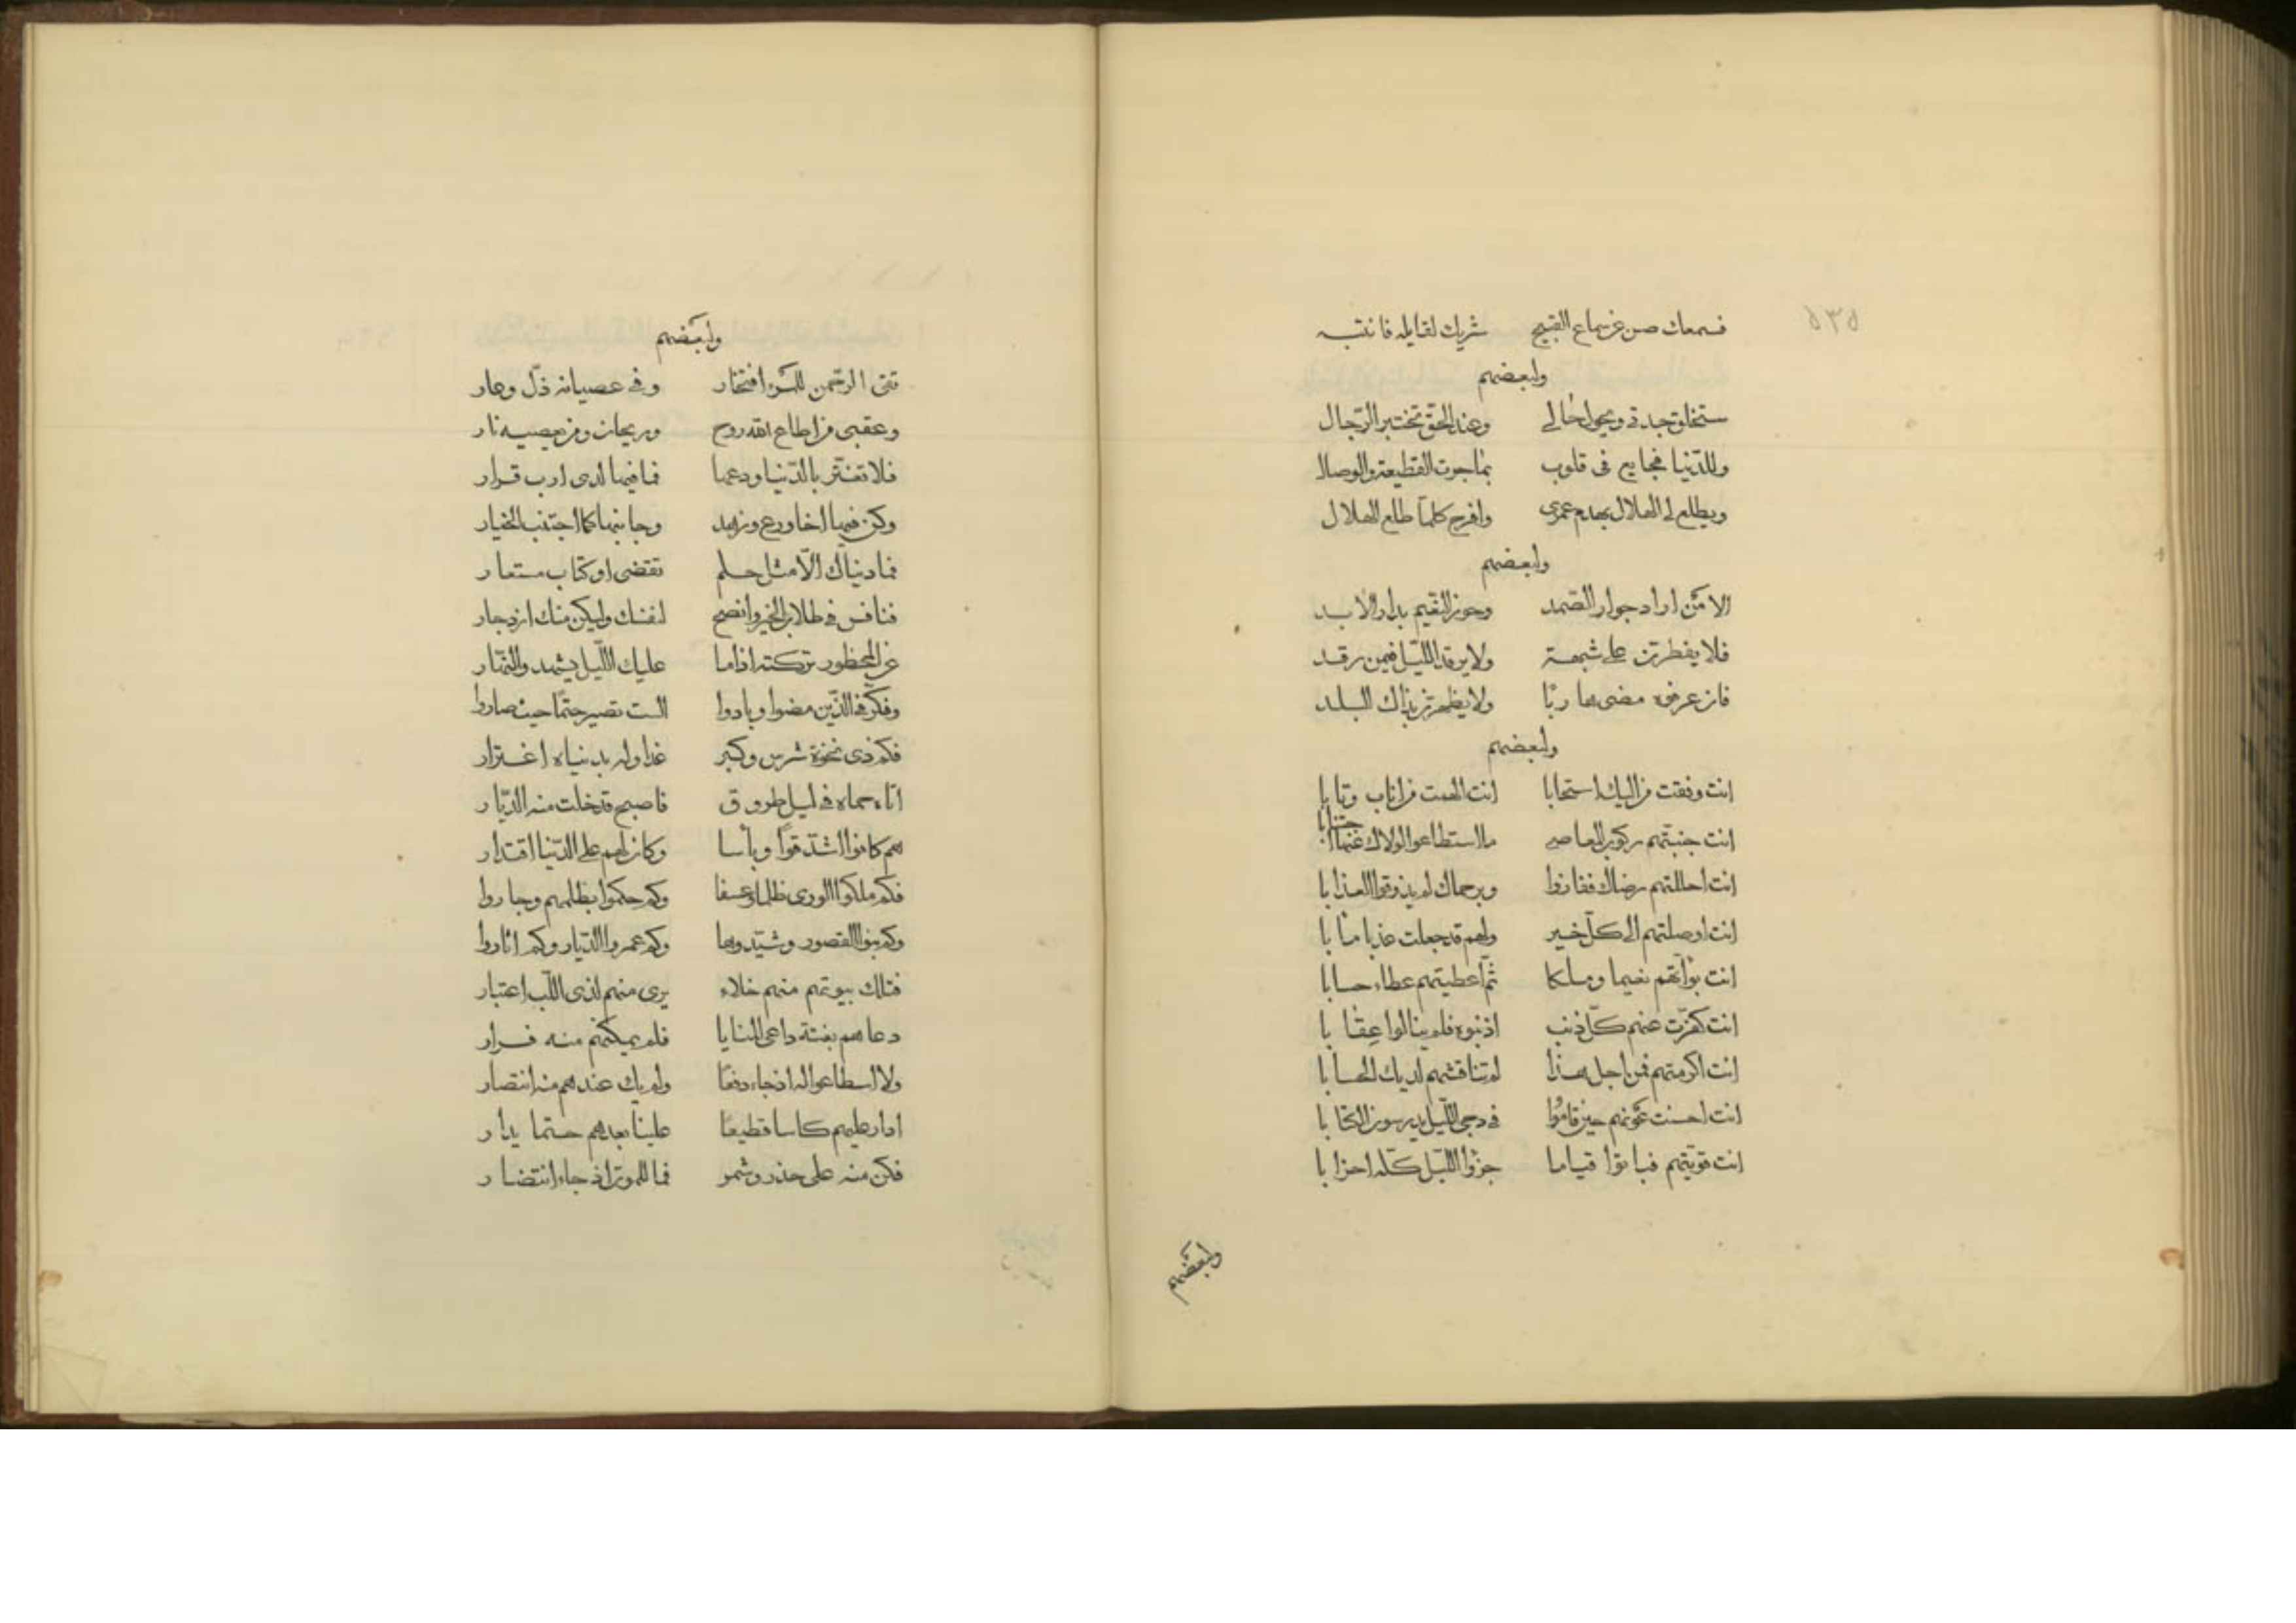 ٥٣٥
فسمعك صن عن سماع القبيح شريك لقايله فانتبه
ولبعضهم
ستخلق جدتي ويحول حالي وعند الحق تختبر الرجال
وللدنيا فجايع في قلوب بما جرت القطيعة والوصال
ويطلع لي الهلال بهدم عمري وافرح كلما طلع الهلال
ولبعضهم
الا من اراد جوار الصمد وحوز النعيم بدار الابد
فلا يفطرن على شبهة ولا يرقد الليل فيمن رقد
فان عرفه مضى هاربا ولا يظهرن بذاك البلد
ولبعضهم
انت وفقت من اليك استجابا انت الهمت من اناب وتابا
انت جنبتهم ركوب المعاصي ما استطاعوا لولاك عنها اجتنابا
انت احللتهم رضاك ففازوا وبرحماك لم يذوقوا العذابا
انت اوصلتهم الى كل خير ولهم قد جعلت مآبا
انت بوأتهم نعيما وملكا ثم اعطيتهم عطاء حسابا
انت كفرت عنهم كل ذنب اذنبوه فلم ينالوا عقابا
انت اكرمتهم فمن اجل هذا لم تناقشهم لديك الحسابا
انت احسنت عونهم حين قاموا في دجى الليل يدرسون الكتابا
انت قويتهم فباتوا قياما جزؤا الليل كله احزابا
ولبعضهم
ولبعضهم
تقى الرحمن للمرء افتخار وفي عصيانه ذل وعار
وعقبى من اطاع الله روح وريحان ومن يعصيه نار
فلا تغتر بالدنيا ودعها فما فيها لذى ارب قرار
وكن فيها اخا ورع وزهد وجانبها كما اجتنب الخيار
فما دنياك الا مثل حلم تقضى او كتاب مستعار
فنافس في طلاب الخير وانصح لنفسك وليكن منك ازدجار
عن المحظور تركته اذا ما عليك الليل يشهد والنهار
وفكر في الذين مضوا وبادوا الست تصير حتما حيث صاروا
فكم ذي نخوة شرس وكبر غدا وله بدنياه اغترار
اتاه حماه في ليل طروق فاصبح قد خلت منه الديار
هم كانوا اشد قوا وبأسا وكان لهم على الدنيا اقتدار
فكم ملكوا الورى ظلما وعسفا وكم حكموا بظلمهم وجاروا
وكم بنوا القصور وشيدوها وكم عمروا الديار وكم اثاروا
فتلك بيوتهم منهم خلاء يرى منهم لذى اللب اعتبار
دعاهم بغتة داعى المنايا فلم يمكنهم منه فرار
ولا اسطاعوا له اذ جاء دفعا ولم يك عندهم منه انتصار
ادار عليهم كاسا قطيعا علينا بعدهم حتما يدار
فكن منه على حذر وشمر فما للموت اذ جاء انتضار